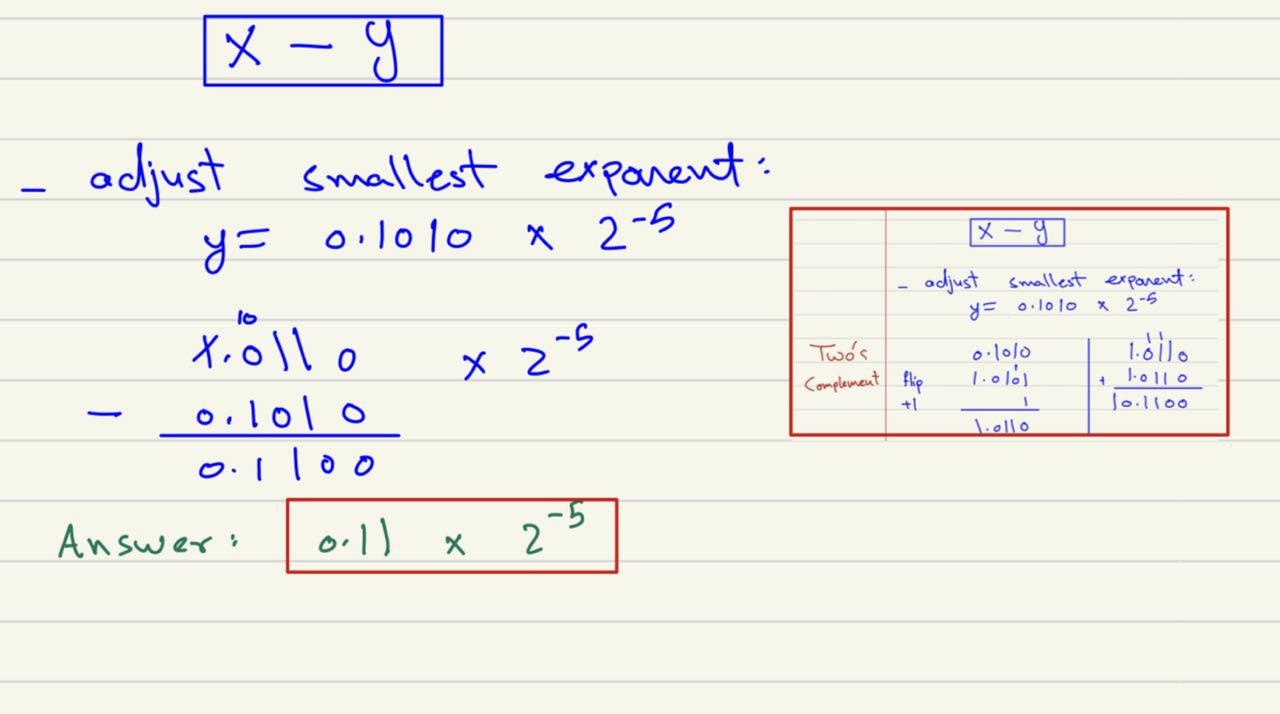 x - y
- adjust smallest exponent:
y = 0.1010 × 2^-5
10
1.0110 × 2^-5
- 0.1010
0.1100
Answer: 0.11 × 2^-5
x - y
- adjust smallest exponent:
y = 0.1010 × 2^-5
Two's Complement
0.1010
flip 1.0101
+1 1
1.0110
1 1
1.0110
+ 1.0110
10.1100